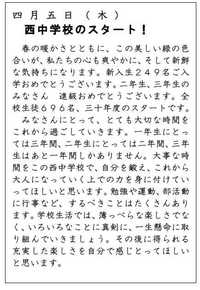 四月五日(木)
西中学校のスタート!
春の暖かさとともに、この美しい緑の色
合いが、私たちの心も爽やかに、そして新鮮
な気持ちになります。新入生249名ご入
学おめでとうございます。二年生、三年生の
みなさん 進級おめでとうございます。全
校生徒696名、三十年度のスタートです。
みなさんにとって、とても大切な時間を
これから過ごしていきます。一年生にとっ
ては三年間、二年生にとっては二年間、三年
生はあと一年間しかありません。大事な時
間をこの西中学校で、自分を鍛え、これから
大人になっていく上での力を身に付けてい
ってほしいと思います。勉強や運動、部活動
に行事など、するべきことはたくさんあり
ます。学校生活では、薄っぺらな楽しさでな
く、いろいろなことに真剣に、一生懸命に取
り組んでいきましょう。その後に得られる
充実した楽しさを自分で感じとってほしい
と思います。